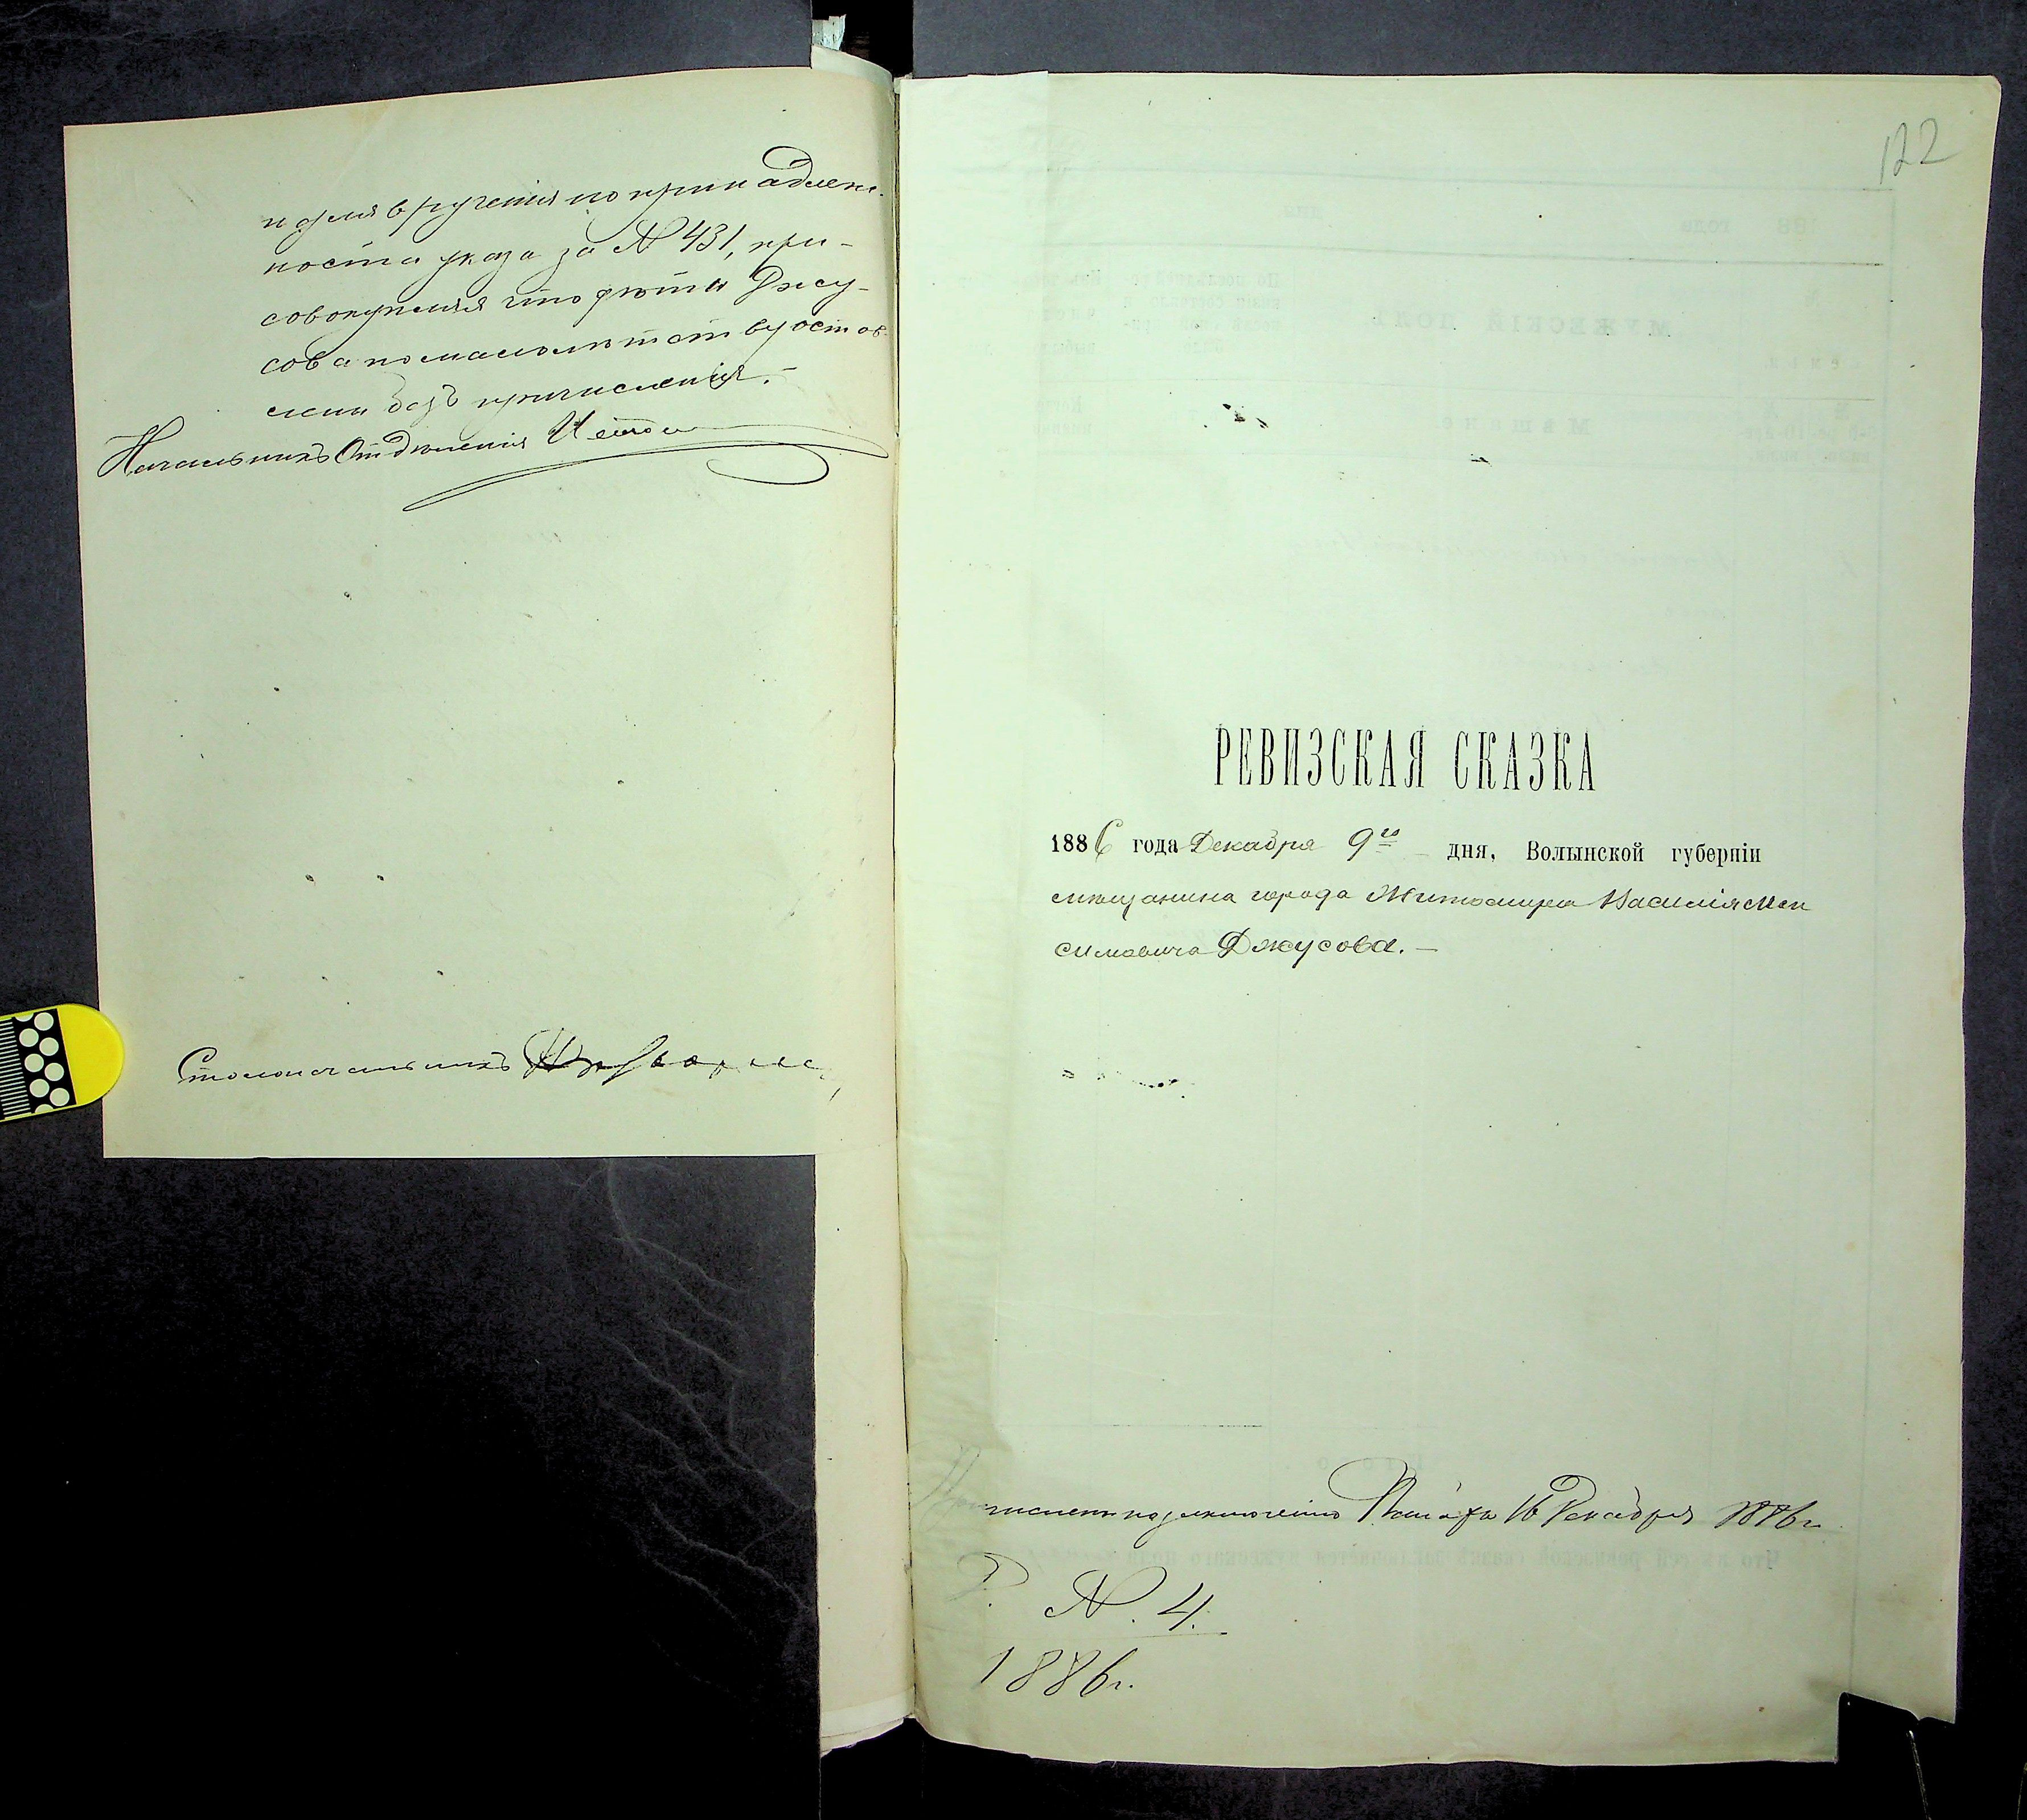 и для врученія по принадлеж-
ности указа за № 431, при-
совокупляя что дѣти Джу-
сова по малолѣтству остав-
лены безъ причисленія.-
Начальникъ Отдѣленія
Столоначальникъ
122
РЕВИЗСКАЯ СКАЗКА
1886 года Декабря 9го дня, Волынской губерніи
мѣщанина города Житомира Василія Мак
симовича Джусова.-
16 Декабря 1886 г.
Р. № 4.
1886 г.